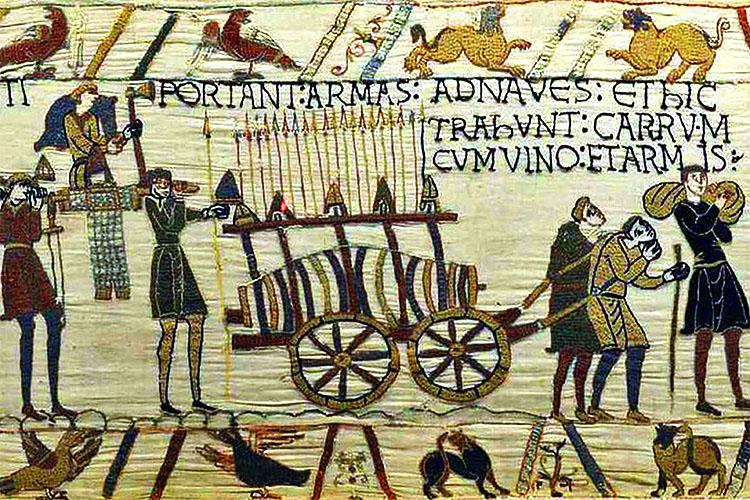 TI PORTANT:ARMAS: ADNAVES: EThIC
TRAhVNT: CARRVM
CVMVINO:ETARMIS: